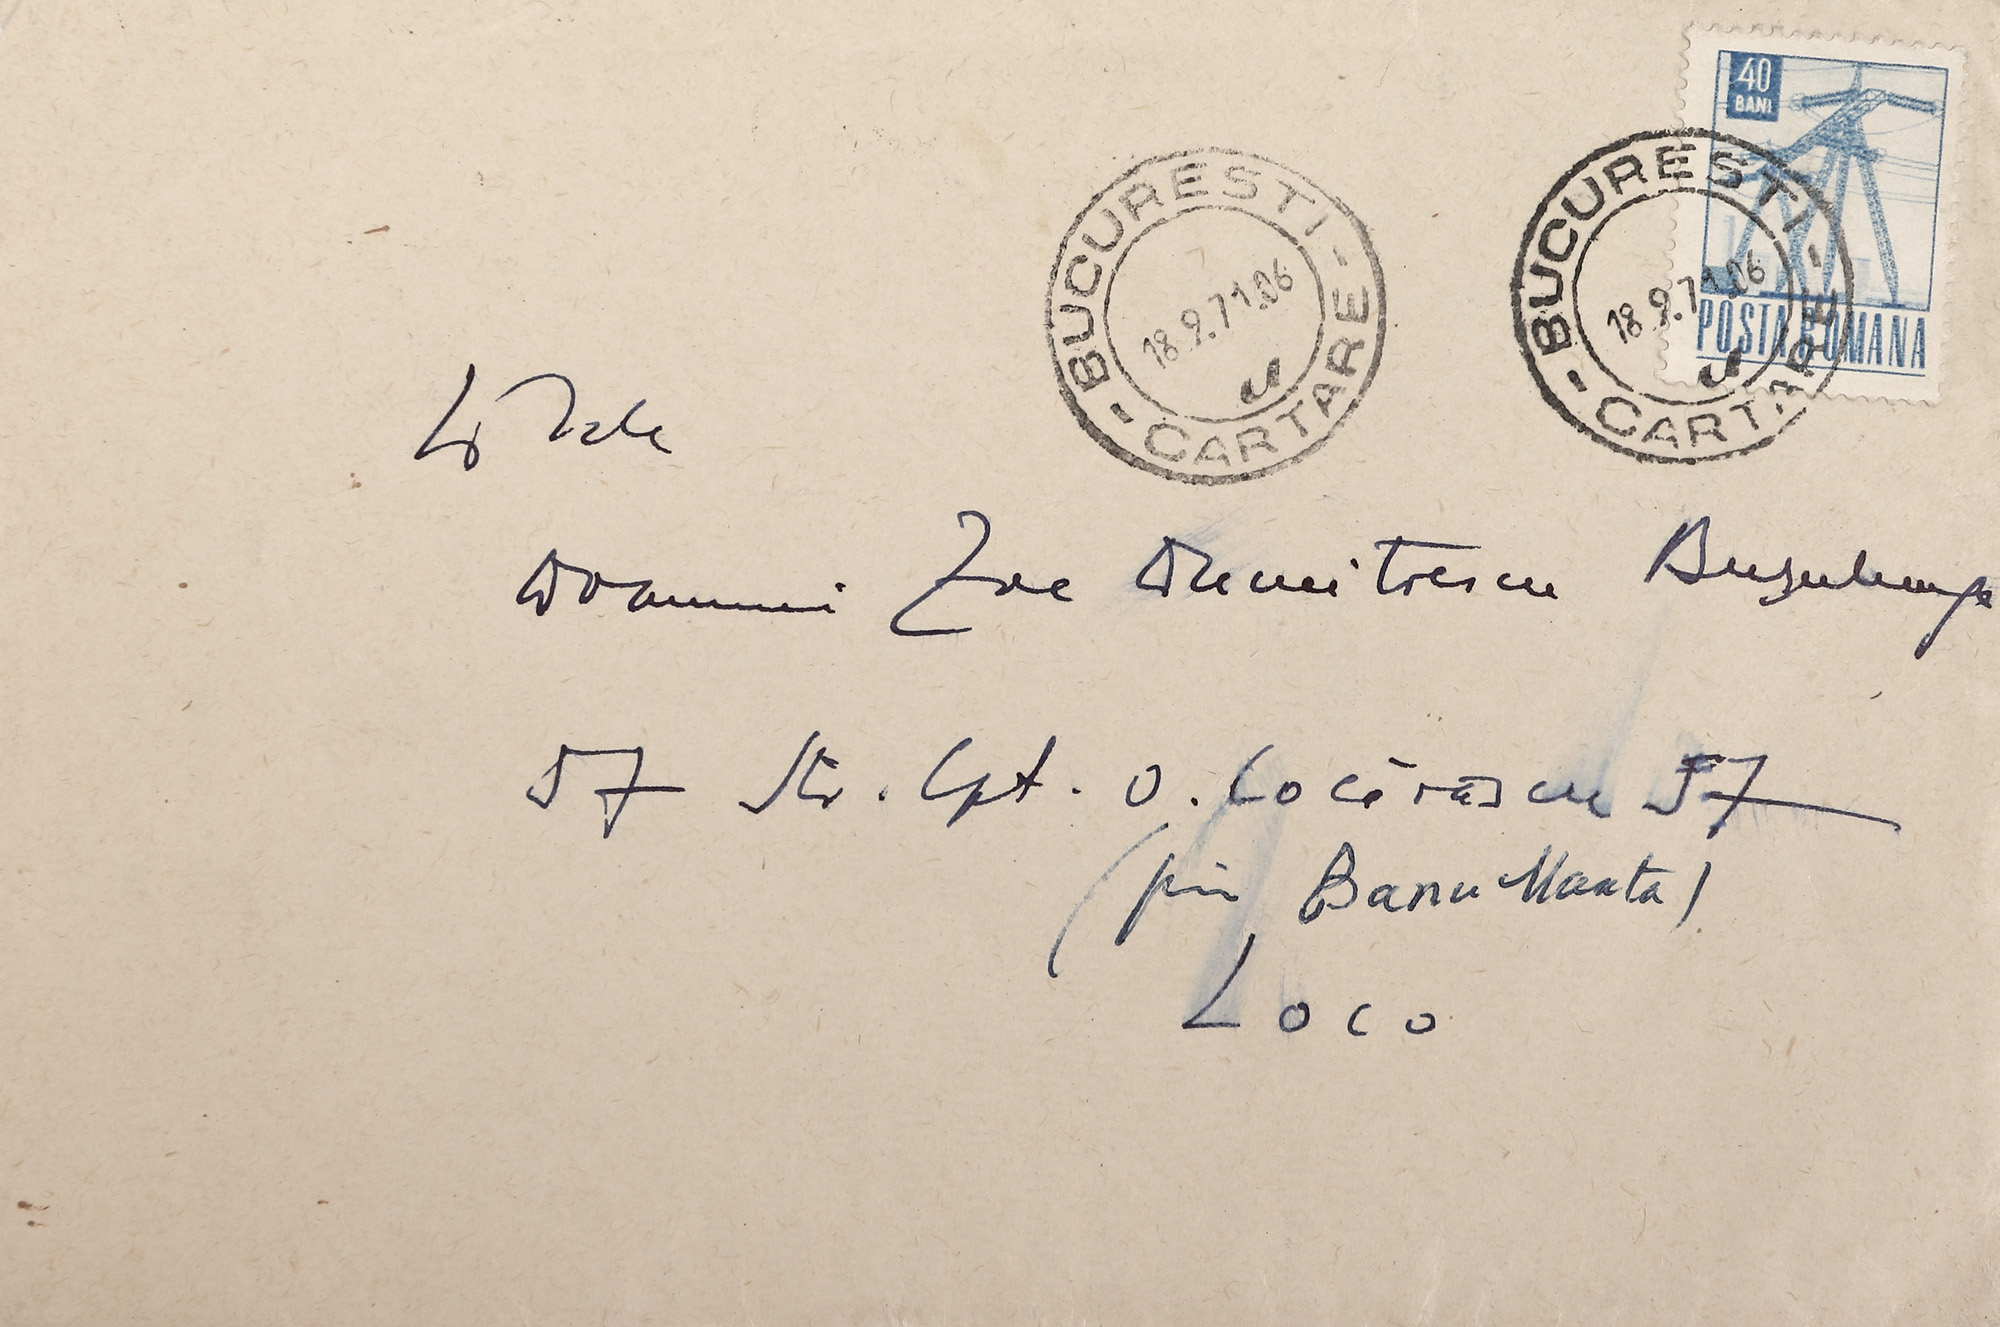 40
BANI
POSTA ROMANA
BUCURESTI
- CARTARE -
18.9.71.06
BUCURESTI
- CARTARE -
18.9.71.06
Doamnei Zoe Dumitrescu Bușulenga
57 Str. Cpt. O. Cocărăscu 57
(prin Banu Manta)
Loco